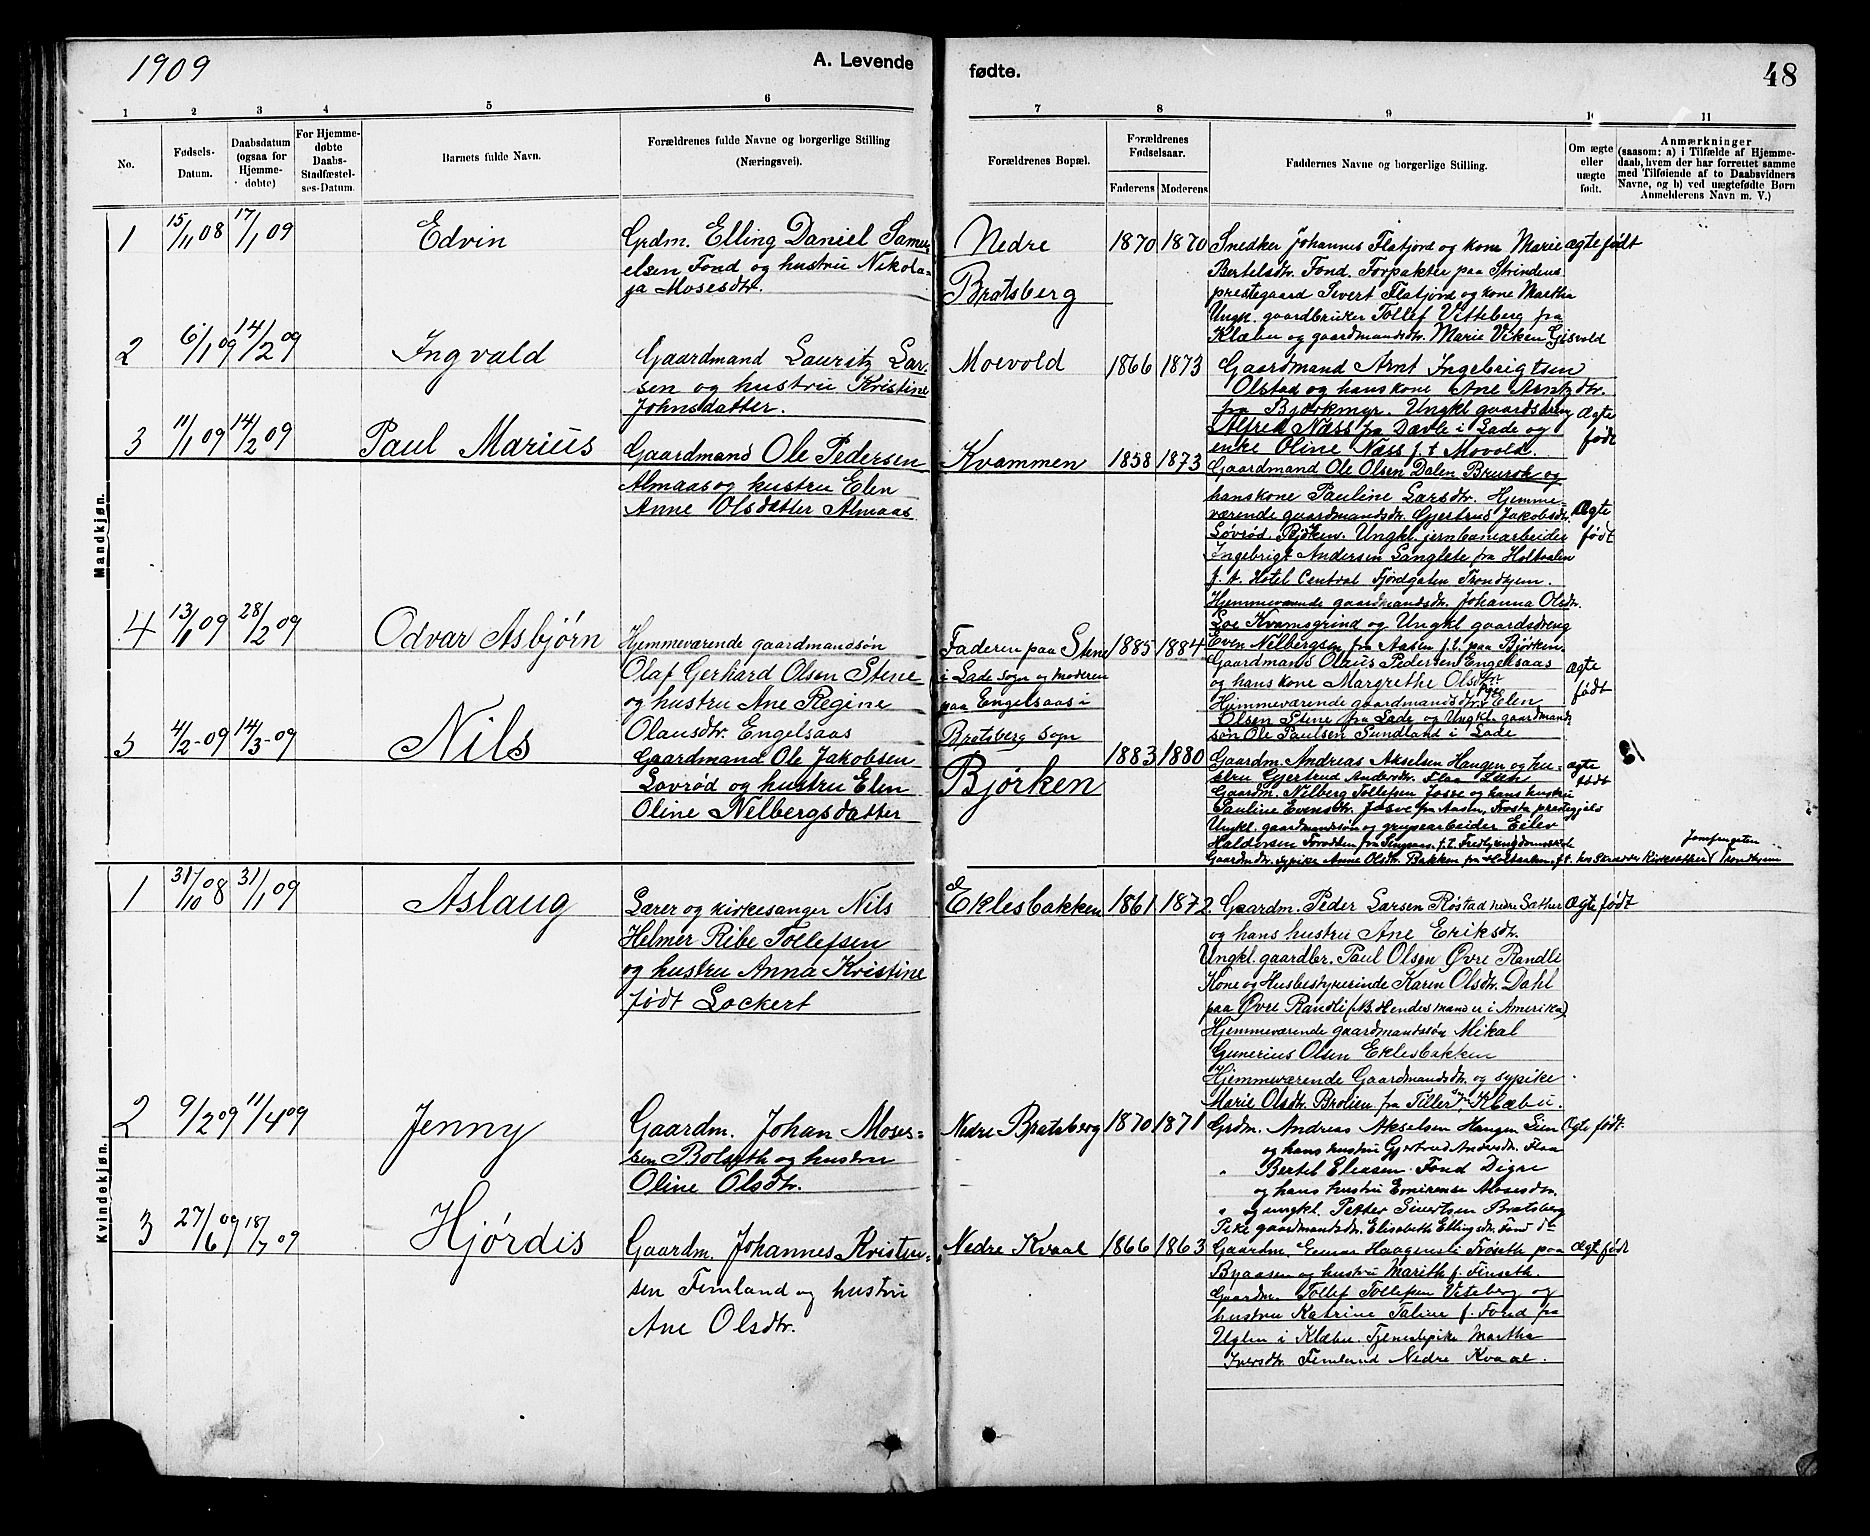 1909
A. Levende
fødte.
48
1 2 3 4 5 6 7 8 9 10 11
No.
Fødsels-
Datum.
Daabsdatum
(ogsaa for
Hjemme-
døbte)
For Hjemme-
døbte
Daabs-
Stadfæstel-
ses-Datum.
Barnets fulde Navn.
Forældrenes fulde Navne og borgerlige Stilling
(Næringsvei).
Forældrenes Bopæl.
Forældrenes
Fødselsaar.
Faderens Moderens
Faddernes Navne og borgerlige Stilling.
Om ægte
eller
uægte
født.
Anmærkninger
(saasom: a) i Tilfælde af Hjemme-
daab, hvem der har forrettet samme
med Tilføiende af to Daabsvidners
Navne, og b) ved uægtefødte Børn
Anmelderens Navn m. V.)
Mandkjøn.
1 15/11 08 17/1 09 Edvin
Grdm. Elling Daniel Samu-
elsen Fond og hustru Nikola-
ja Mosesdtr.
Nedre
Bratsberg
1870 1870
Snedker Johannes Flatjord og kone Marie
Bertelsdtr. Fond. Forpakter paa Strindens
prestegaard Sivert Flatjord og kone Martha
Ungk. gaardbruker Tollef Vitteberg fra
Klæbu og gaardmandsdtr. Marie Viken Gisvold
ægte født
2 6/1 09 14/2 09 Ingvald
Gaardmand Lauritz Lar-
sen og hustru Kristine
Johnsdatter.
Moevold
1866 1873
Gaardmand Arnt Ingebrigtsen
Olstad og hans kone Ane Arntzdtr.
fra Bjørkmyr. Ungkl gaardsdreng
Alfred Næss fra Devle i Lade og
enke Oline Næss f. t. Movold.
Ægte
født
3 11/1 09 14/2 09 Paul Marius
Gaardmand Ole Pedersen
Almaas og hustru Elen
Anne Olsdatter Almaas
Kvammen
1858 1873
Gaardmand Ole Olsen Dalen Brurok og
hans kone Pauline Larsdtr. Hjemme-
værende gaardmandsdtr. Gjertrud Jakobsdtr.
Løvrød, Bjørken. Ungkl. jernbanearbeider
Ingebrigt Andersen Langlete fra Holtaalen
f. t. Hotel Central Fjordgaten Trondhjem.
Hjemmeværende gaardmandsdtr. Johanna Olsdtr.
Loe Kvamsgrind og Ungkl gaardsdreng
Even Nilbergsen fra Aasen f. t. paa Bjørken
Ægte
født
4 13/1 09 28/2 09 Odvar Asbjørn
Hjemmeværende gaardmandsøn
Olaf Gerhard Olsen Stene
og hustru Ane Regine
Olausdtr. Engelsaas
Faderen paa Stene
i Lade sogn og moderen
paa Engelsaas i
Bratsberg sogn
1885 1884
Gaardmand Olaus Pedersen Engelsaas
og hans kone Margrethe Olsdtr.
Hjemmeværende gaardmandsdtr. Elen
Olsen Stene fra Lade og Ungkl. gaardmand-
søn Ole Paulsen Sundland i Lade
ægte
født
5 4/2-09 14/3-09 Nils
Gaardmand Ole Jakobsen
Lovrød og hustru Elen
Oline Nelbergsdatter
Bjørken
1883 1880
Gaardm. Andreas Akselsen Haugen og hu-
stru Gjertrud Andersdtr. Flaa Lien
Gaardm. Nilberg Tollefsen Josve og hans hustru
Pauline Evensdtr. Josve fra Aasen, Frosta prestegjeld
Ungkl. gaardmandssøn og grupearbeider Eilev
Haldorsen
Gaardmdtr. sypike Anne Olsdtr. Bakken fra Holtaalen f. t.
Trondhjem
ægte
født
Kvindekjøn.
1 31/10 08 31/1 09 Aslaug
Lærer og kirkesanger Nils
Helmer Ribe Tollefsen
og hustru Anna Kristine
født Lockert
Eklesbakken
1861 1872
Gaardm. Peder Larsen Røstad nedre Sæther
og hans hustru Ane Eriksdtr.
Ungkl. gaardbr. Paul Olsen Øvre Randli
Kone og Husbestyrerinde Karen Olsdtr. Dahl
paa Øvre Randli (NB. Hendes mand er i Amerika)
Hjemmeværende gaardmandssøn Mikal
Gunerius Olsen Eklesbakken
Hjemmeværende Gaardmandsdtr. og sypike
Marie Olsdtr. Brøtten fra Tiller i Klæbu.
Ægte født
2 9/2 09 11/4 09 Jenny
Gaardm. Johan Moses-
sen Bolseth og hustru
Oline Olsdtr.
Nedre Bratsberg
1870 1871
Grdm. Andreas Akselsen Haugen Lien
og hans hustru Gjertrud Andersdtr. Flaa
" Bertel Eleasen Fond Digre
og hans hustru Emirense Mosesdtr.
" og ungkl. Petter Sivertsen Bratsberg
Pike gaardmandsdtr. Elisabeth Ellingsdtr. Fond
Ægte født.
3 27/6 09 18/7 09 Hjørdis
Gaardm. Johannes Kristen-
sen Femland og hustru
Ane Olsdtr.
Nedre Kvaal
1866 1863
Gaardm. Einar Haagensli Frøseth paa
Byaasen og hustru Marith f. Finseth.
Gaardm. Tollef Tollefsen Viteberg og
hustru Katrine Taline f. Fond fra
Uglen i Klæbu. Tjenestpike Martha
Iversdtr. Femlund Nedre Kvaal.
Ægt født